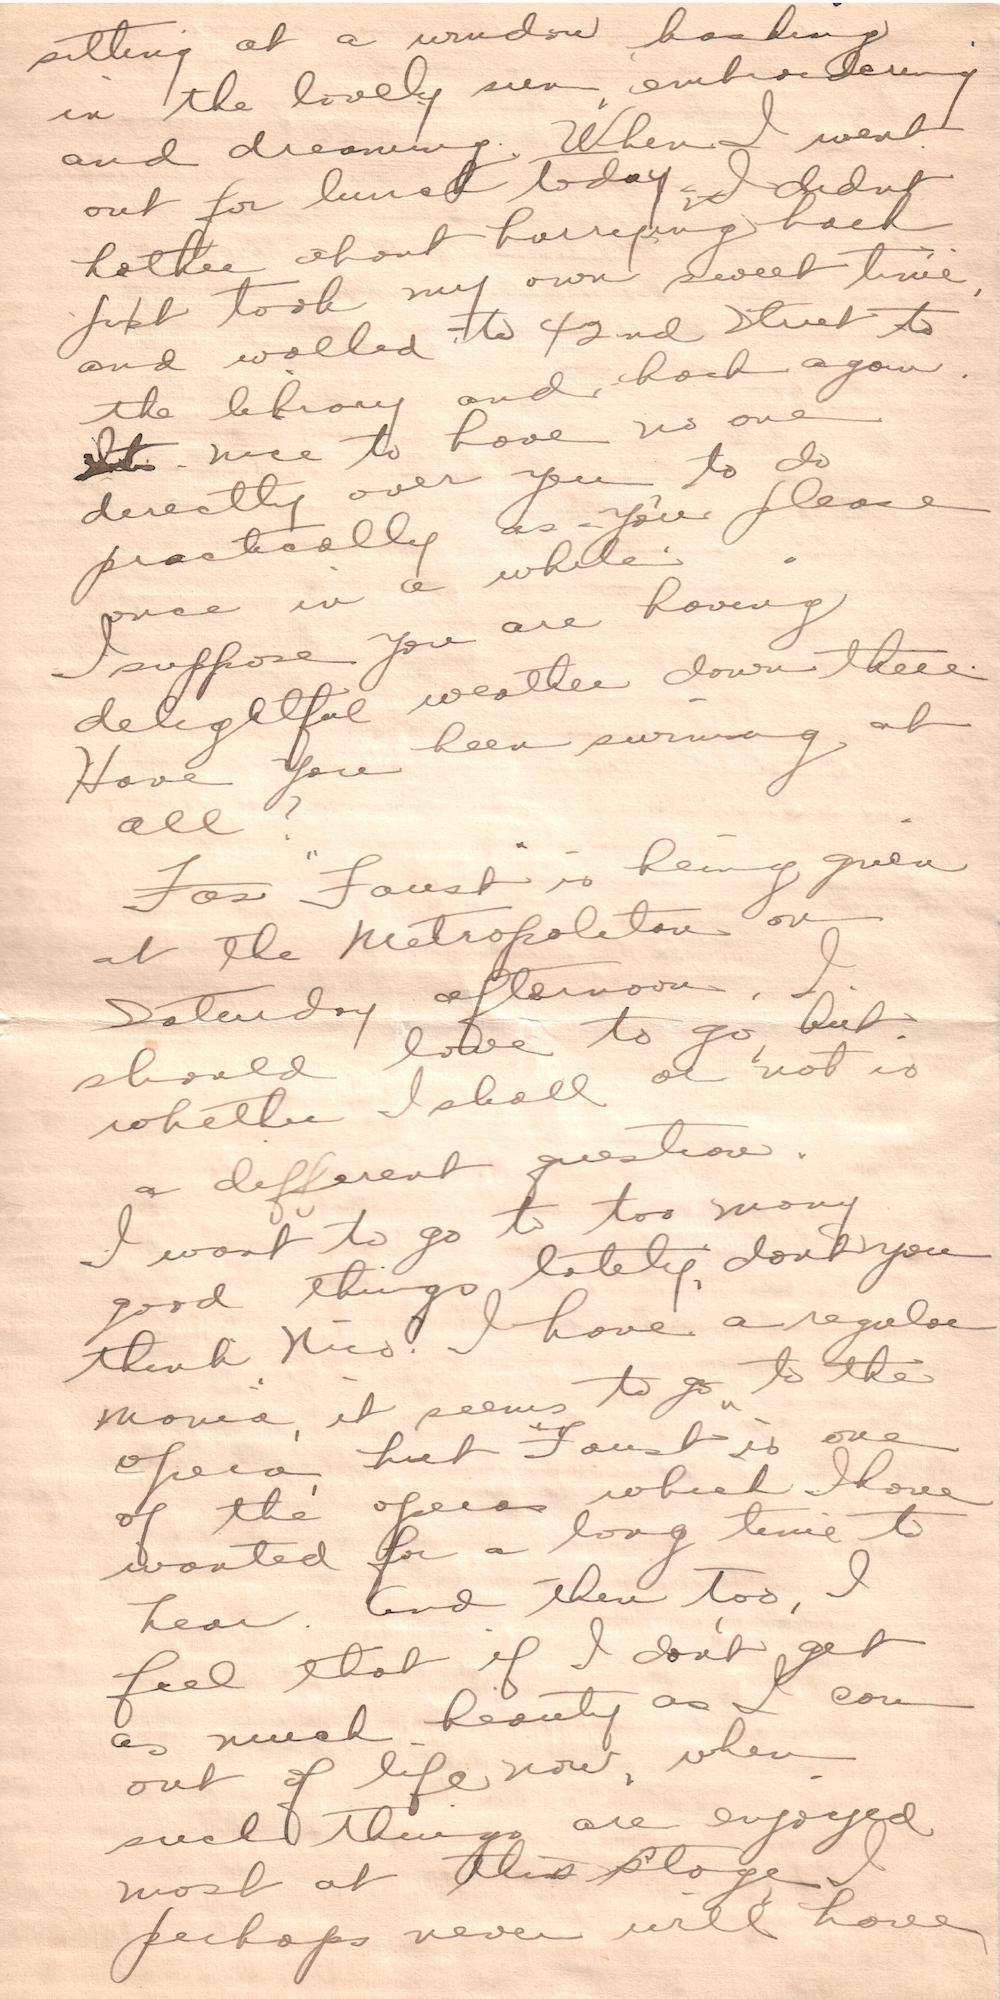 sitting at a window basking
in the lovely sun, embroidering
and dreaming. When I went
out for lunch today, I didnt
bother about hurrying back
just took my own sweet time,
and walked to 42nd Street to
the library and back again.
Its nice to have no one
directly over you to do
practically as you please
once in a while.
I suppose you are having
delightful weather down there.
Have you been swimming at
all?
Fas "Faust" is being given
at the Metropolitan on
Saturday afternoon. I
should love to go, but
whether I shall or not is
a different question.
I want to go to too many
good things lately, dont you
think, Nico? I have a regular
mania, it seems to go to the
opera, but "Faust" is one
of the operas which I have
wanted for a long time to
hear. And then too, I
feel that if I don't get
as much beauty as I can
out of life now, when
such things are enjoyed
most at this stage, I
perhaps never will have